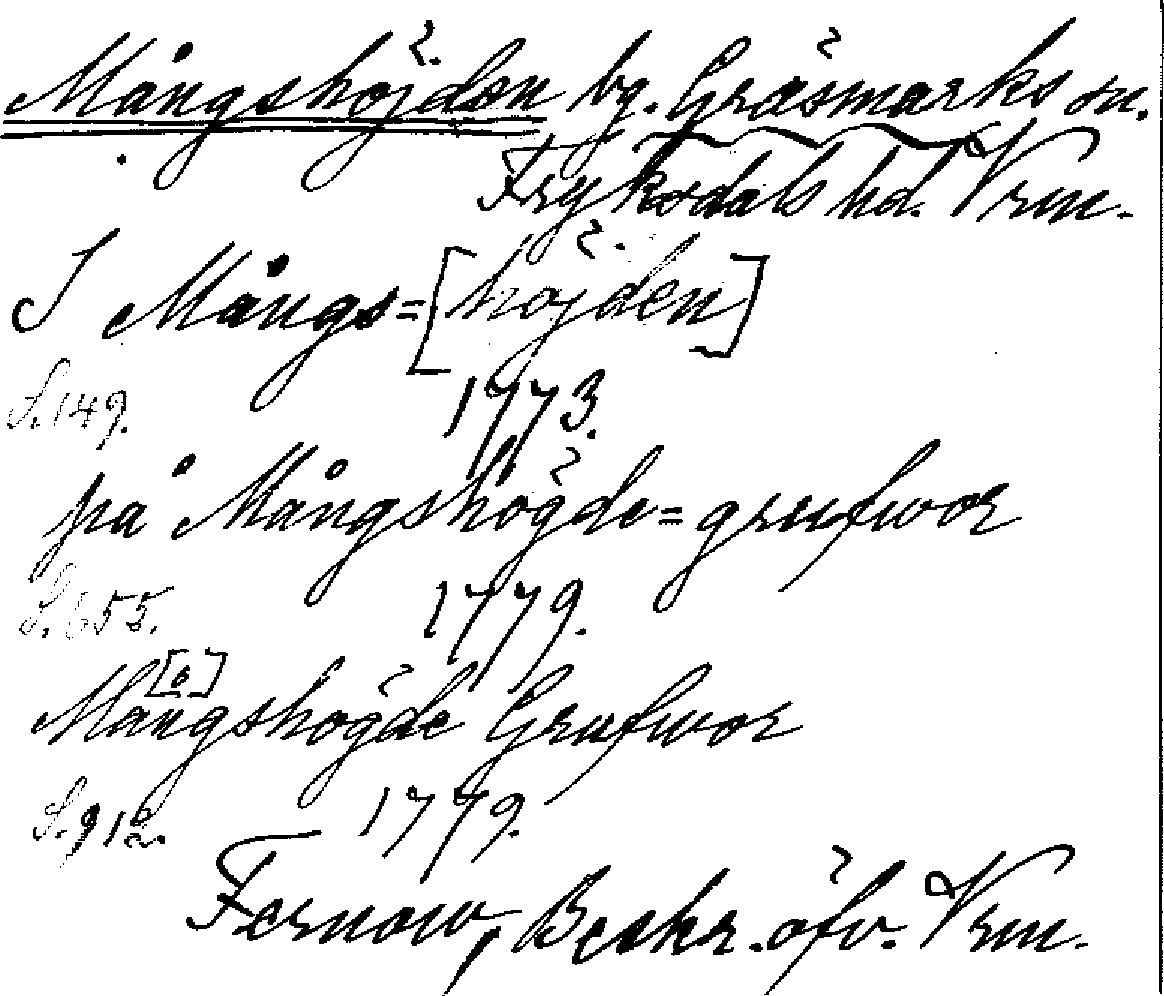 Mångshöjden bg. Gräsmarks sn.
Fryksdals hd. Vrm.
I Mångs=[höjden]
S. 149. 1773.
på Mångshögde=grufwor
S. 655. 1779.
Ma[o]ngshögde Grufwor
S. 912. 1779.
Fernow, Beskr. öfv. Vrm.